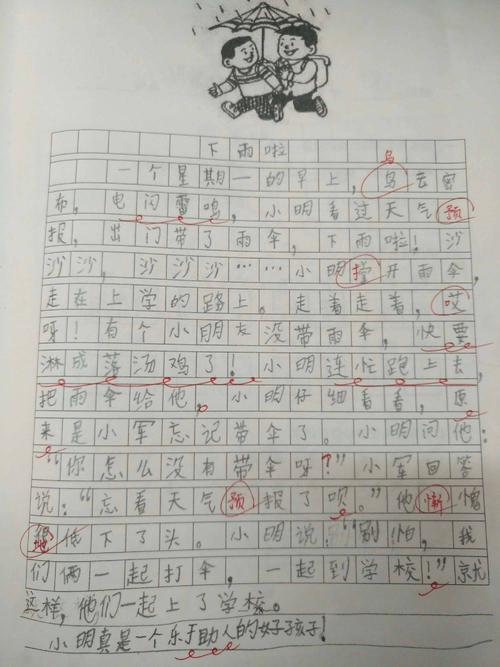 下雨啦
乌
一个星期一的早上，乌云密
布，电闪雷鸣，小明看过天气预
报，出门带了雨伞，下雨啦！沙
沙沙，沙沙沙……小明撑开雨伞，
走在上学的路上。走着走着，哎
呀！有个小朋友没带雨伞，快要
淋成落汤鸡了！小明连忙跑上去，
把雨伞给他。小明仔细看看，原
来是小军忘记带伞了。小明问他：
“你怎么没有带伞呀？”小军回答
说：“忘看天气预报了呗。”他惭愧
得低下了头。小明说：“别怕，我
们俩一起打伞，一起到学校！”就
这样，他们一起上了学校。
小明真是一个乐于助人的好孩子！